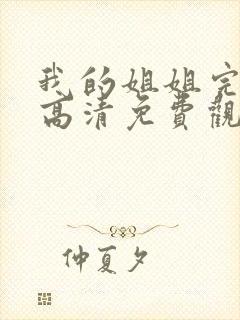 我的姐姐完
高清免費觀
仲夏夕